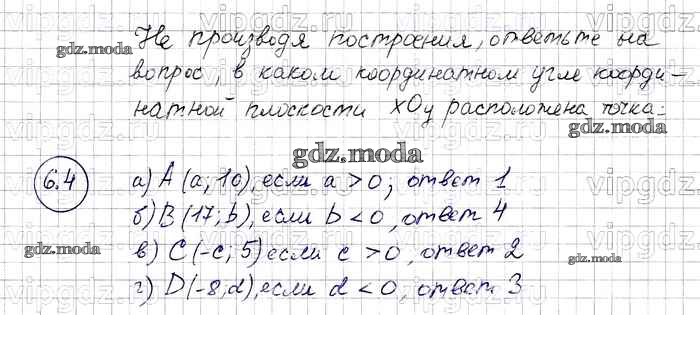 Не производя построения, ответьте на
вопрос, в каком координатном угле коорди-
натной плоскости xOy расположена точка:
6.4
а) A (a; 10), если a > 0, ответ 1
б) B (17; b), если b < 0, ответ 4
в) C (-c; 5) если c > 0, ответ 2
г) D (-8; d), если d < 0, ответ 3
gdz.moda
gdz.moda
gdz.moda
gdz.moda
gdz.moda
vipgdz.ru